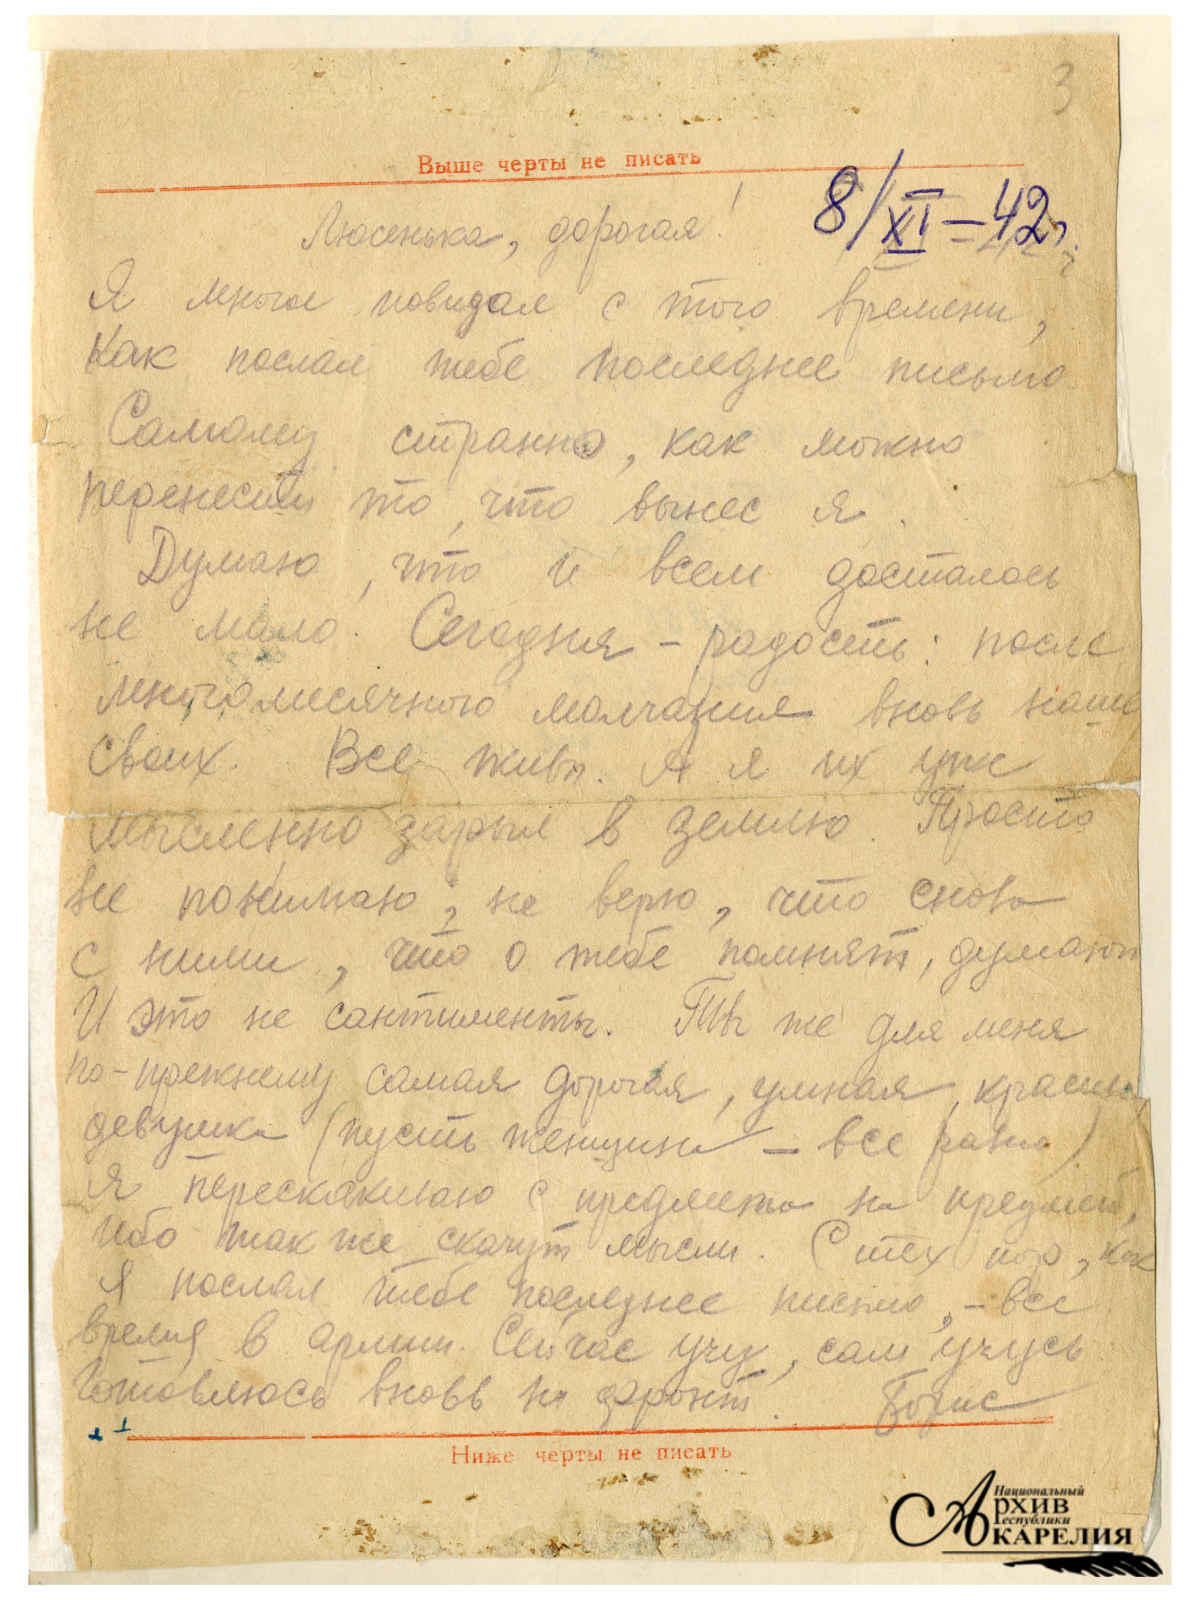 3
Выше черты не писать
8/XI – 42 г.
Люсенька, дорогая!
Я много повидал с того времени,
Как послал тебе последнее письмо
Самому странно, как можно
перенести то, что вынес я.
Думаю, что и всем досталось
не мало. Сегодня – радость: после
многомесячного молчания вновь нашел
своих. Все живы. А я их уже
мысленно зарыл в землю. Просто
не понимаю, не верю, что снова
с ними, что о тебе помнят, думают
И это не сантименты. Ты же для меня
по-прежнему самая дорогая, умная, красивая
девушка (пусть женщина – все равно)
Я перескакиваю с предмета на предмет,
ибо так же скачут мысли. С тех пор, как
я послал тебе последнее письмо, – все
время в армии. Сейчас учу, сам учусь
Готовлюсь вновь на фронт. Борис
Ниже черты не писать
Национальный
АРХИВ
Республики
КАРЕЛИЯ